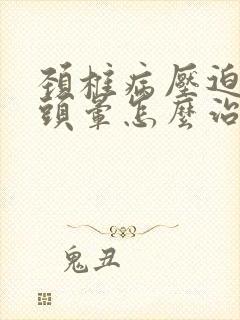 頚椎病壓迫
頭暈怎麼治
鬼丑